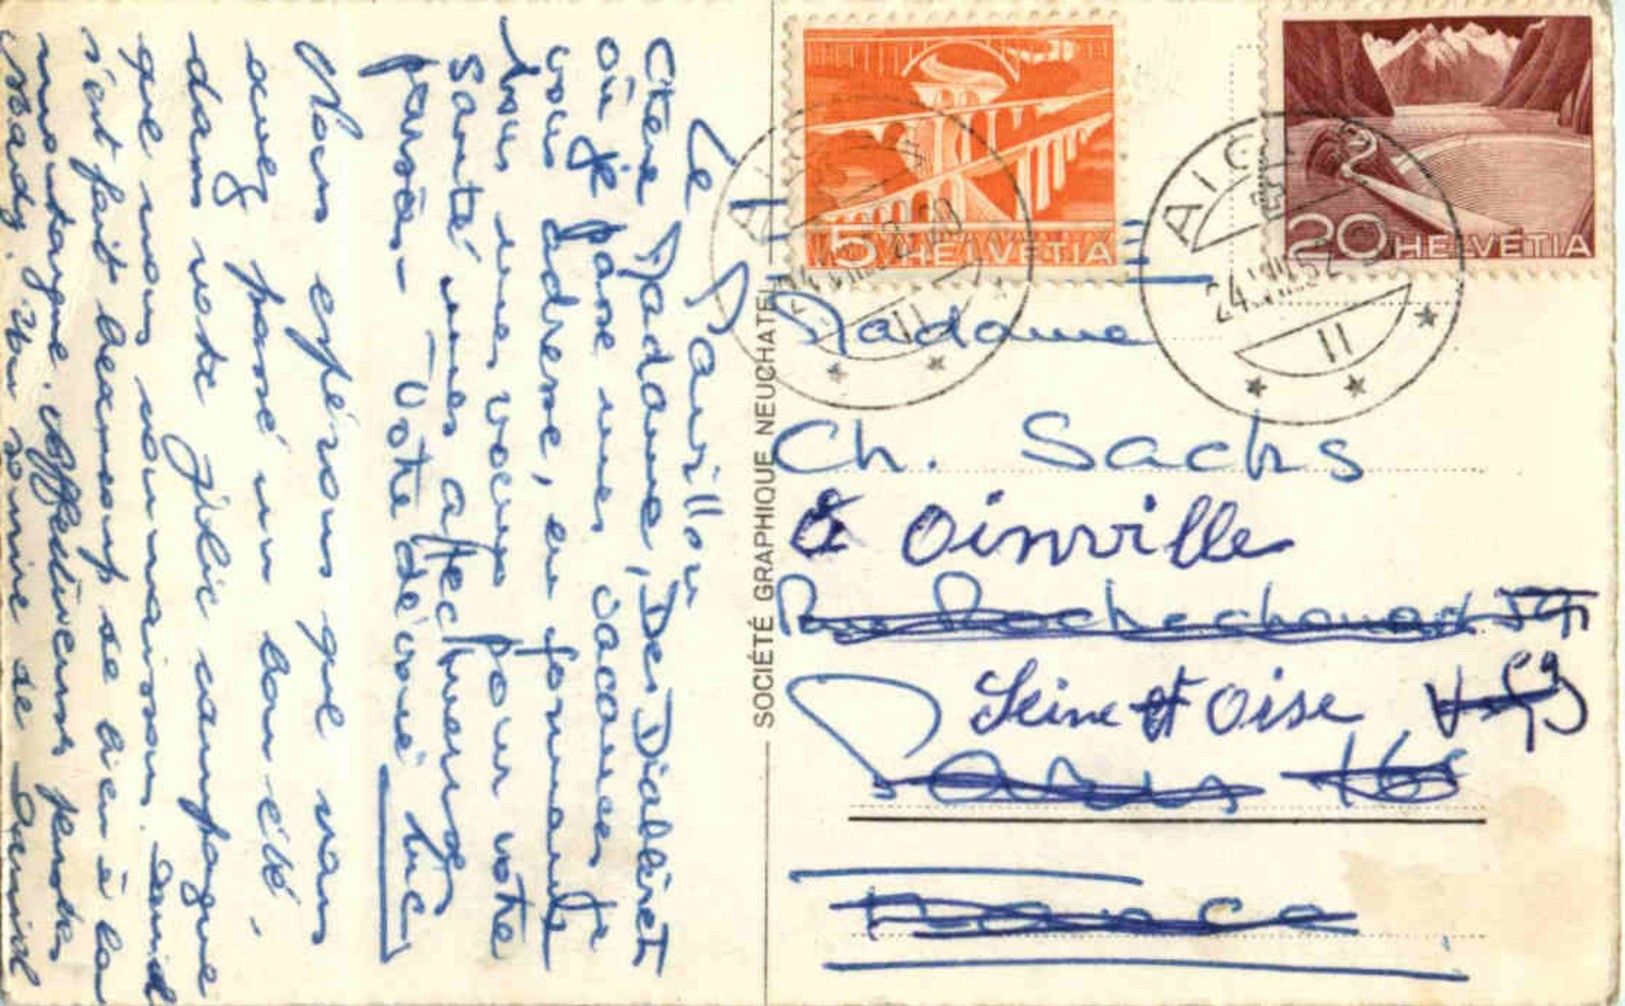 Le Pavillon
Chère Madame, Des Diablerets
où je passe mes vacances je
vous adresse, en formant
tous mes voeux pour votre
santé mes affectueuses
pensées - Votre dévoué Luc
Nous espérons que vous
avez passé un bon été,
dans votre jolie campagne
que nous connaissons. Daniel
s'est fait beaucoup de bien à la
montagne. Affectueuses pensées
Mady. Un sourire de Daniel
SOCIÉTÉ GRAPHIQUE NEUCHATEL
5 HELVETIA
20 HELVETIA
AIGLE
24.VIII.52
11
AIGLE
24.VIII.52
11
Madame
Ch. Sachs
à Oinville
Rue Rochechouart 59
Seine et Oise
Paris
France